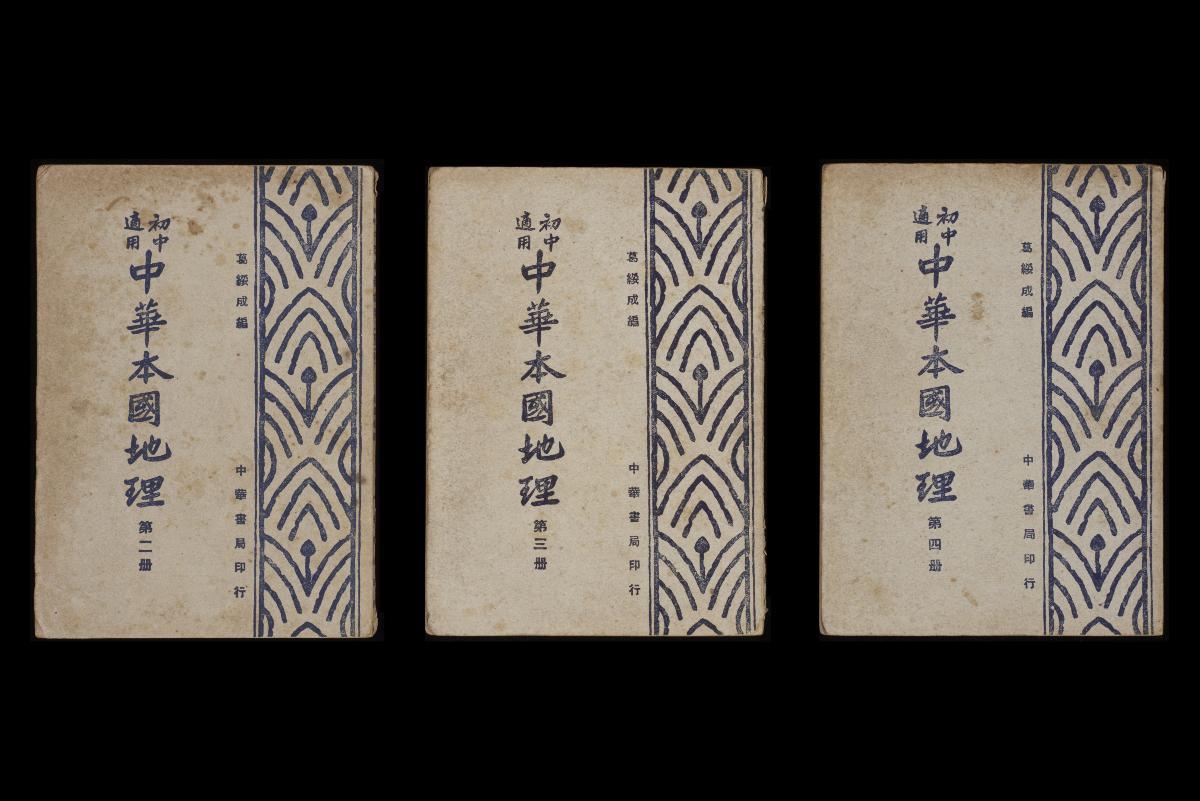 初中
適用
中華本國地理
第二册
葛綏成編
中華書局印行
初中
適用
中華本國地理
第三册
葛綏成編
中華書局印行
初中
適用
中華本國地理
第四册
葛綏成編
中華書局印行